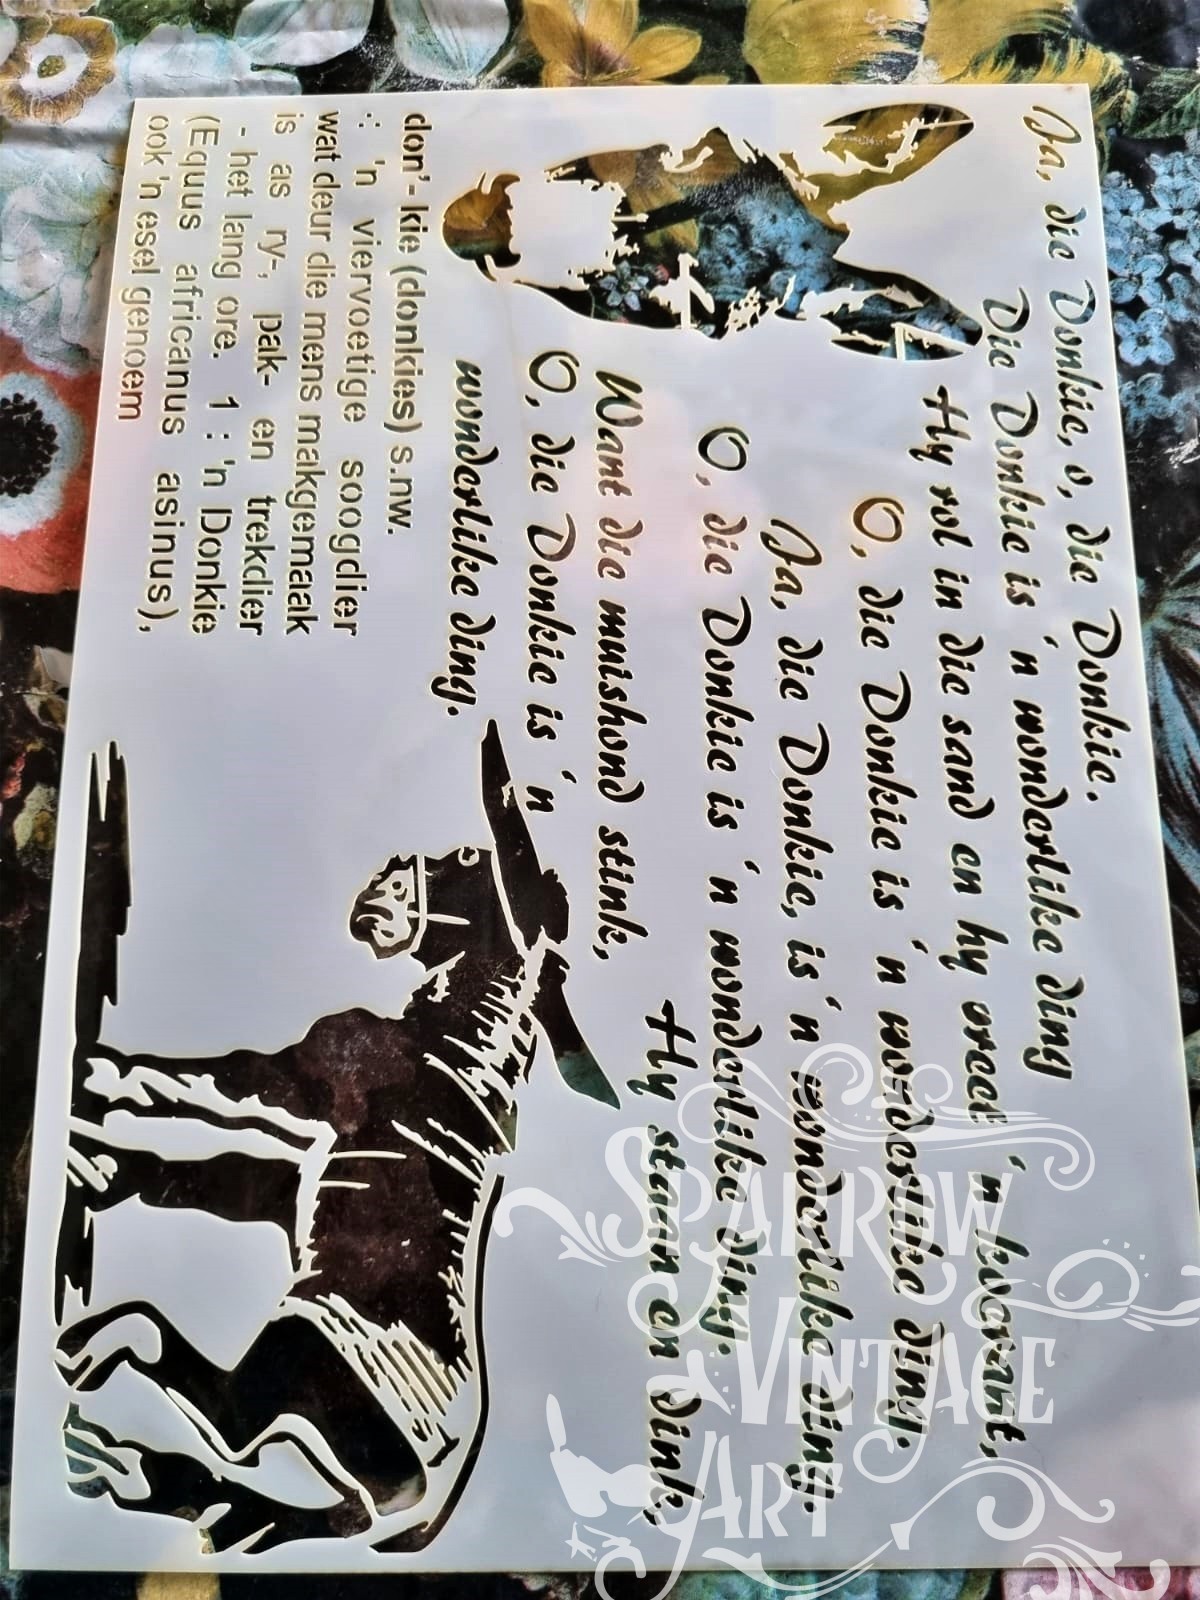 Ja, die Donkie, o, die Donkie.
Die Donkie is 'n wonderlike ding
Hy rol in die sand en hy vreet 'n kweraut,
O, die Donkie is 'n wonderlike ding.
Ja, die Donkie, is 'n wonderlike ding.
O, die Donkie is 'n wonderlike ding.
Hy staan en dink,
Want die muishond stink,
O, die Donkie is 'n
wonderlike ding.
don'- kie (donkies) s.nw.
: 'n viervoetige soogdier
wat deur die mens makgemaak
is as ry-, pak- en trekdier
- het lang ore. 1 : 'n Donkie
(Equus africanus asinus),
ook 'n esel genoem
SPARROW
VINTAGE
ART